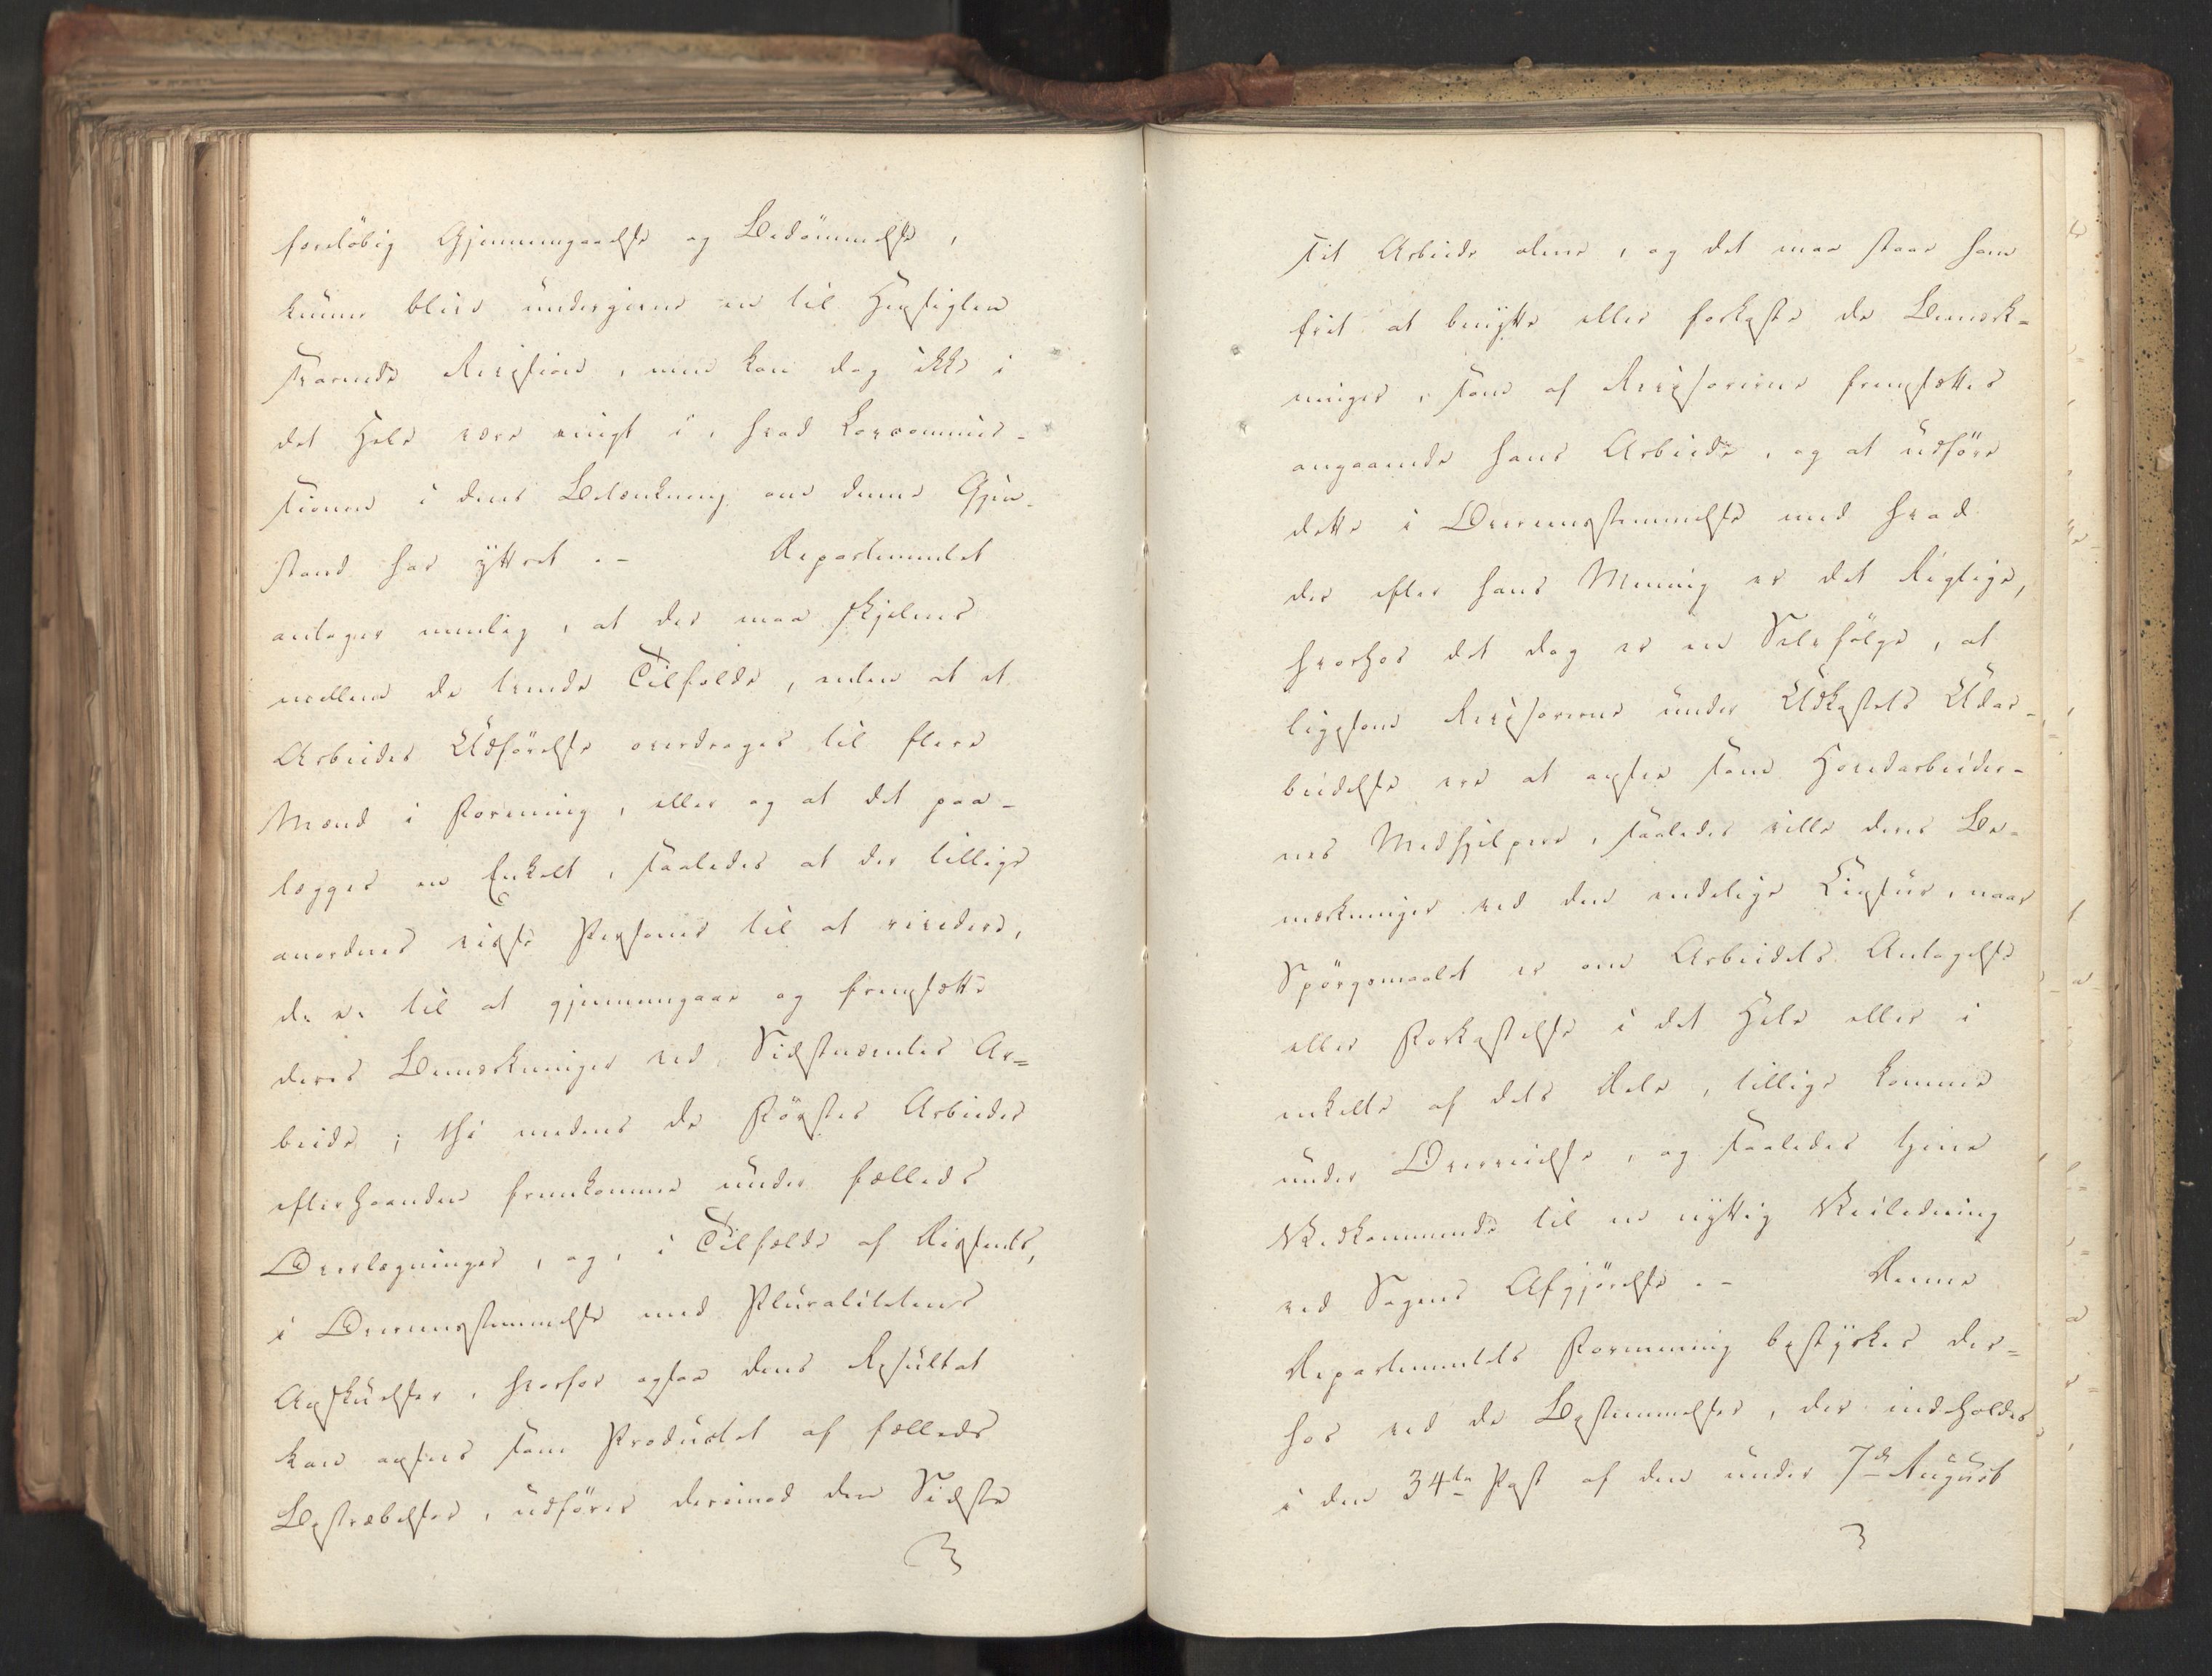 foreløbig Gjennemgaaelse og Bedømmelse,
kunne blive undergivne en til Hensigten
svarende Revision, men kan dog ikke i
det Hele være enigt i, hvad Lovcommis-
sionen i dens Betænkning om denne Gjen-
stand har yttret. - Departementet
antager nemlig, at der maa skjelnes
mellem de tvende Tilfælde, enten at et
Arbeides Udførelse overdrages til flere
Mænd i Forening, eller og at det paa-
lægges en Enkelt, saaledes at der tillige
anordnes visse Personer til at revidere,
d. e. til at gjennemgaae og fremsætte
deres Bemærkninger ved Sidstnævntes Ar=
beide; thi medens de Førstes Arbeider
efterhaanden fremkomme under fælleds
Overlægninger, og, i Tilfælde af Dissents,
i Overeensstemmelse med Pluralitetens
Anskuelser, hvorfor ogsaa dens Resultat
kan ansees som Productet af fælleds
Bestræbelser, udfører derimod den Sidste
sit Arbeide alene, og det maa staae ham
frit at benytte eller forkaste de Bemærk=
ninger, som af Revisorerne fremsættes
angaaende hans Arbeide, og at udføre
dette i Overeensstemmelse med hvad
der efter hans Mening er det Rigtige,
hvorhos det dog er en Selvfølge, at
ligesom Revisorerne under Udkastets Udar-
beidelse ere at ansee som Hovedarbeider-
nes Medhjelpere, saaledes ville deres Be-
mærkninger ved den endelige Censur, naar
Spørgsmaalet er om Arbeidets Antagelse
eller Forkastelse i det Hele eller i
enkelte af dets Dele, tillige komme
under Overveielse, og saaledes tjene
Vedkommende til en nyttig Veiledning
ved Sagens Afgjørelse. - Denne
Departementets Formening bestyrkes der=
hos ved de Bestemmelser, der indeholdes
i den 34te Post af den under 7de August